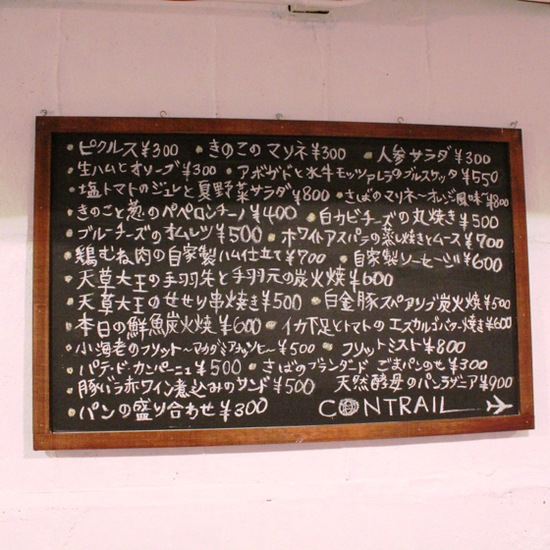 ピクルス¥300 きのこのマリネ¥300 人参サラダ¥300
生ハムとオリーブ¥300 アボガドと水牛モッツァレラのブルスケッタ¥550
塩トマトのジュレと夏野菜サラダ¥800 さばのマリネーオレンジ風味¥800
きのこと葱のペペロンチーノ¥400 白カビチーズの丸焼き¥500
ブルーチーズのオムレツ¥500 ホワイトアスパラの蒸し焼きとムース¥700
鶏むね肉の自家製ハム仕立て¥700 自家製ソーセージ¥600
天草大王の手羽先と手羽元の炭火焼¥600
天草大王のせせり串焼き¥500 白金豚スペアリブ炭火焼¥500
本日の鮮魚炭火焼¥600 イカ下足とトマトのエスカルゴバター焼き¥600
小海老のフリット〜マカダミアナッツソース〜¥500 フリットミスト¥800
パテ・ド・カンパーニュ¥500 さばのブランダード ごまパンのせ¥300
豚バラ赤ワイン煮込みのサンド¥500 天然酵母のパンラザニア¥900
パンの盛り合わせ¥300 CONTRAIL